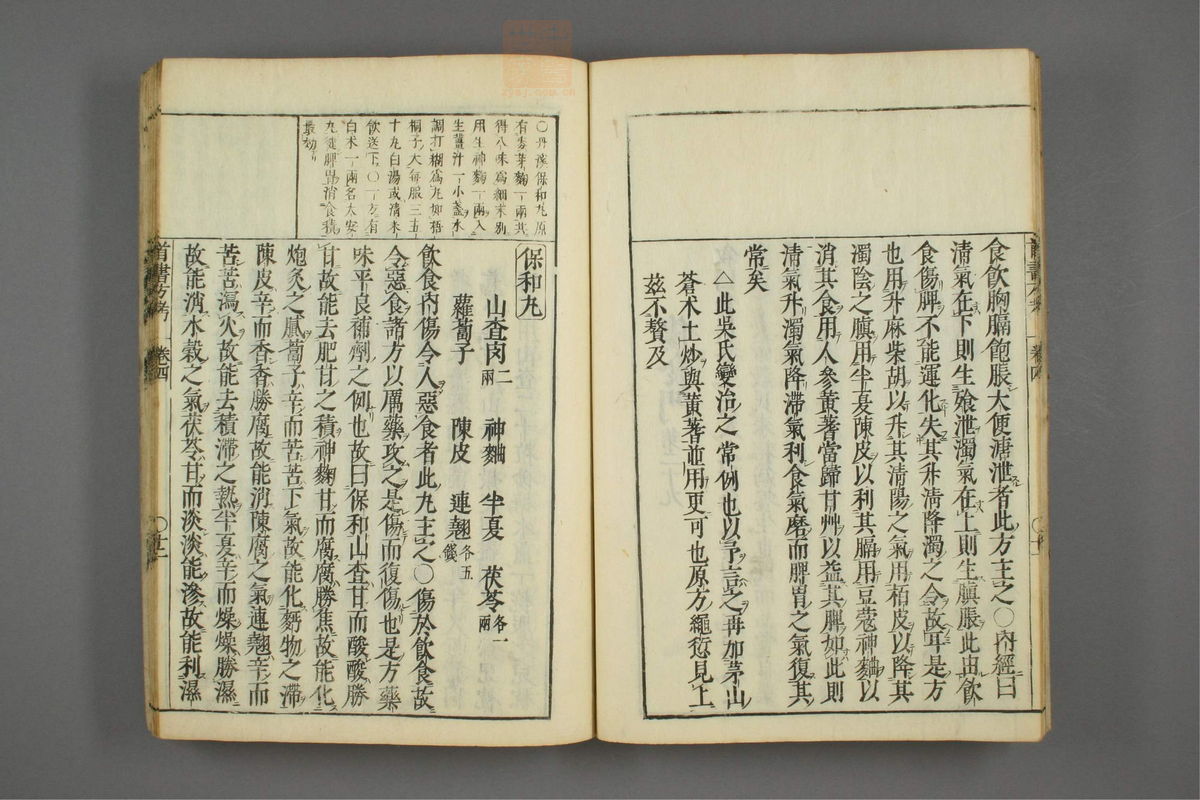 食飲胸膈飽脹大便溏泄者此方主之○內經曰
清氣在下則生飧泄濁氣在上則生䐜脹此由飲
食傷脾不能運化失其升清降濁之令故耳是方
也用升麻柴胡以升其清陽之氣用栢皮以降其
濁陰之䐜用半夏陳皮以利其膈用豆蔻神麯以
消其食用人參黃蓍當歸甘艸以益其脾如此則
清氣升濁氣降滯氣利食氣磨而脾胃之氣復其
常矣
△此吳氏變治之常例也以予言之再加茅山
蒼术土炒與黃蓍並用更可也原方繩愆見上
茲不贅及
○丹溪保和丸原
有麥芽麴一兩共
得八味爲細末別
用生神麴一兩入
生薑汁一小盞水
調打糊爲丸如梧
桐子大每服三五
十丸白湯或清米
飲送下○一方有
白术一兩名大安
丸健脾胃消食積
最効
保和丸
山査肉二兩 神麯 半夏 茯苓各一兩
蘿蔔子 陳皮 連翹各五錢
飲食內傷令人惡食者此丸主之○傷於飲食故
令惡食諸方以厲藥攻之是傷而復傷也是方藥
味平良補劑之例也故曰保和山査甘而酸酸勝
甘故能去肥甘之積神麴甘而腐腐勝焦故能化
炮炙之膩蔔子辛而苦苦下氣故能化麪物之滯
陳皮辛而香香勝腐故能消陳腐之氣連翹辛而
苦苦瀉火故能去積滯之熱半夏辛而燥燥勝濕
故能消水穀之氣茯苓甘而淡淡能滲故能利濕
首書方考 卷四 ○廿二